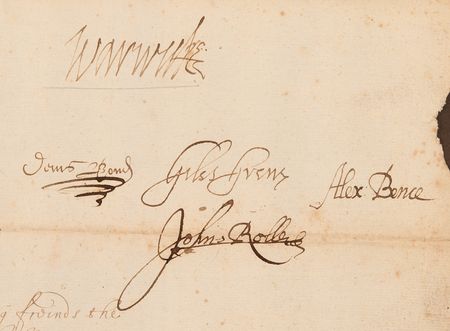 Warwick
Denis Bond Giles Grene Alex Bence
John Rolle
the